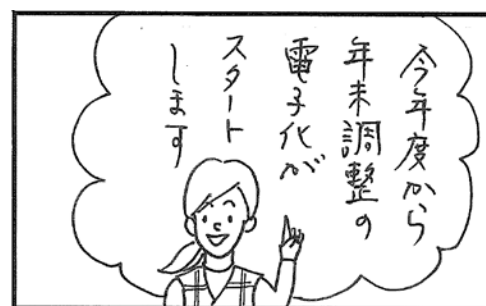 今年度から
年末調整の
電子化が
スタート
します